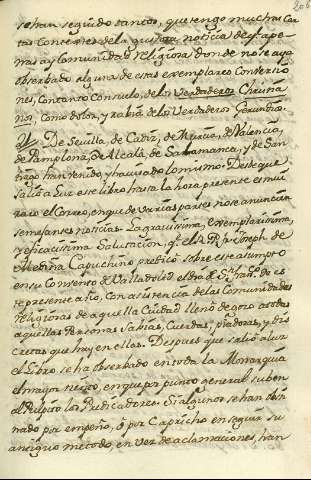 206
se han seguido tantos, que tengo muchas Car
tas Contextes de la gustosa noticia de q.e ape
nas ay Comunidad religiosa donde no se aya
observado alguna de estas exemplares Conversio
nes, Con tanto Consuelo, de los Verdaderos Christia
nos, Como dolor, y rabia de los Verdaderos Gerundios.
De Sevilla, de Cadiz, de Murcia, de Valencia,
de Pamplona, de Alcalá, de Salamanca, y de San
tiago han venido y ha avisado lo mismo. Desde que
salió a luz este libro hasta la hora presente es mui
raro el Correo, en que de varias partes no se anuncien
semejantes noticias. La gravissima, exemplarissima,
y eficacissima Salutacion, q.e el R. P. Fr. Joseph de
Medina Capuchino predicó sobre este asumpto
en su Convento de Valladolid el dia de S.n Fran.co de es
te presente año, Con asistencia de las Comunidades
religiosas de aquella Ciudad llenó de gozo a todas
aquellas Personas Sabias, Cuerdas, piadosas, y dis
cretas que hay en ellas. Despues que salió a luz
el Libro se ha observado en toda la Monarquia
el mayor tiento, en que por punto general suben
al Pulpito los Predicadores. Si algunos se han obsti
nado por empeño, ó por Capricho en seguir su
antiguo metodo, en vez de aclamaciones, han